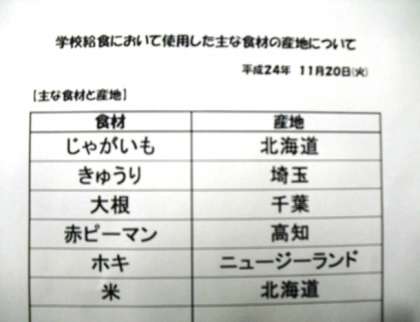 学校給食において使用した主な食材の産地について
平成24年 11月20日(火)
[主な食材と産地]
食材 産地
じゃがいも 北海道
きゅうり 埼玉
大根 千葉
赤ピーマン 高知
ホキ ニュージーランド
米 北海道